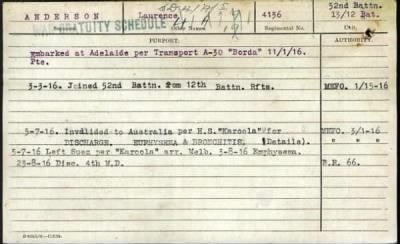 52nd Battn.
ANDERSON Laurence, 4136 13/12 Bat.
WAR GRATUITY SCHEDULE
Surname. Other Names. Regimental No. Unit.
PURPORT. AUTHORITY.
Embarked at Adelaide per Transport A-30 "Borda" 11/1/16.
Pte.
3-3-16. Joined 52nd Battn. from 12th Battn. Rfts. MEFO. 1/15-16
5-7-16. Invalided to Australia per H.S."Karoola" for MEFO. 3/1-16
DISCHARGE. EMPHYSEMA & BRONCHITIS. (Details). " " "
5-7-16 Left Suez per "Karoola" arr. Melb. 3-8-16 Emphysema.
23-8-16 Disc. 4th M.D. B.R. 66.